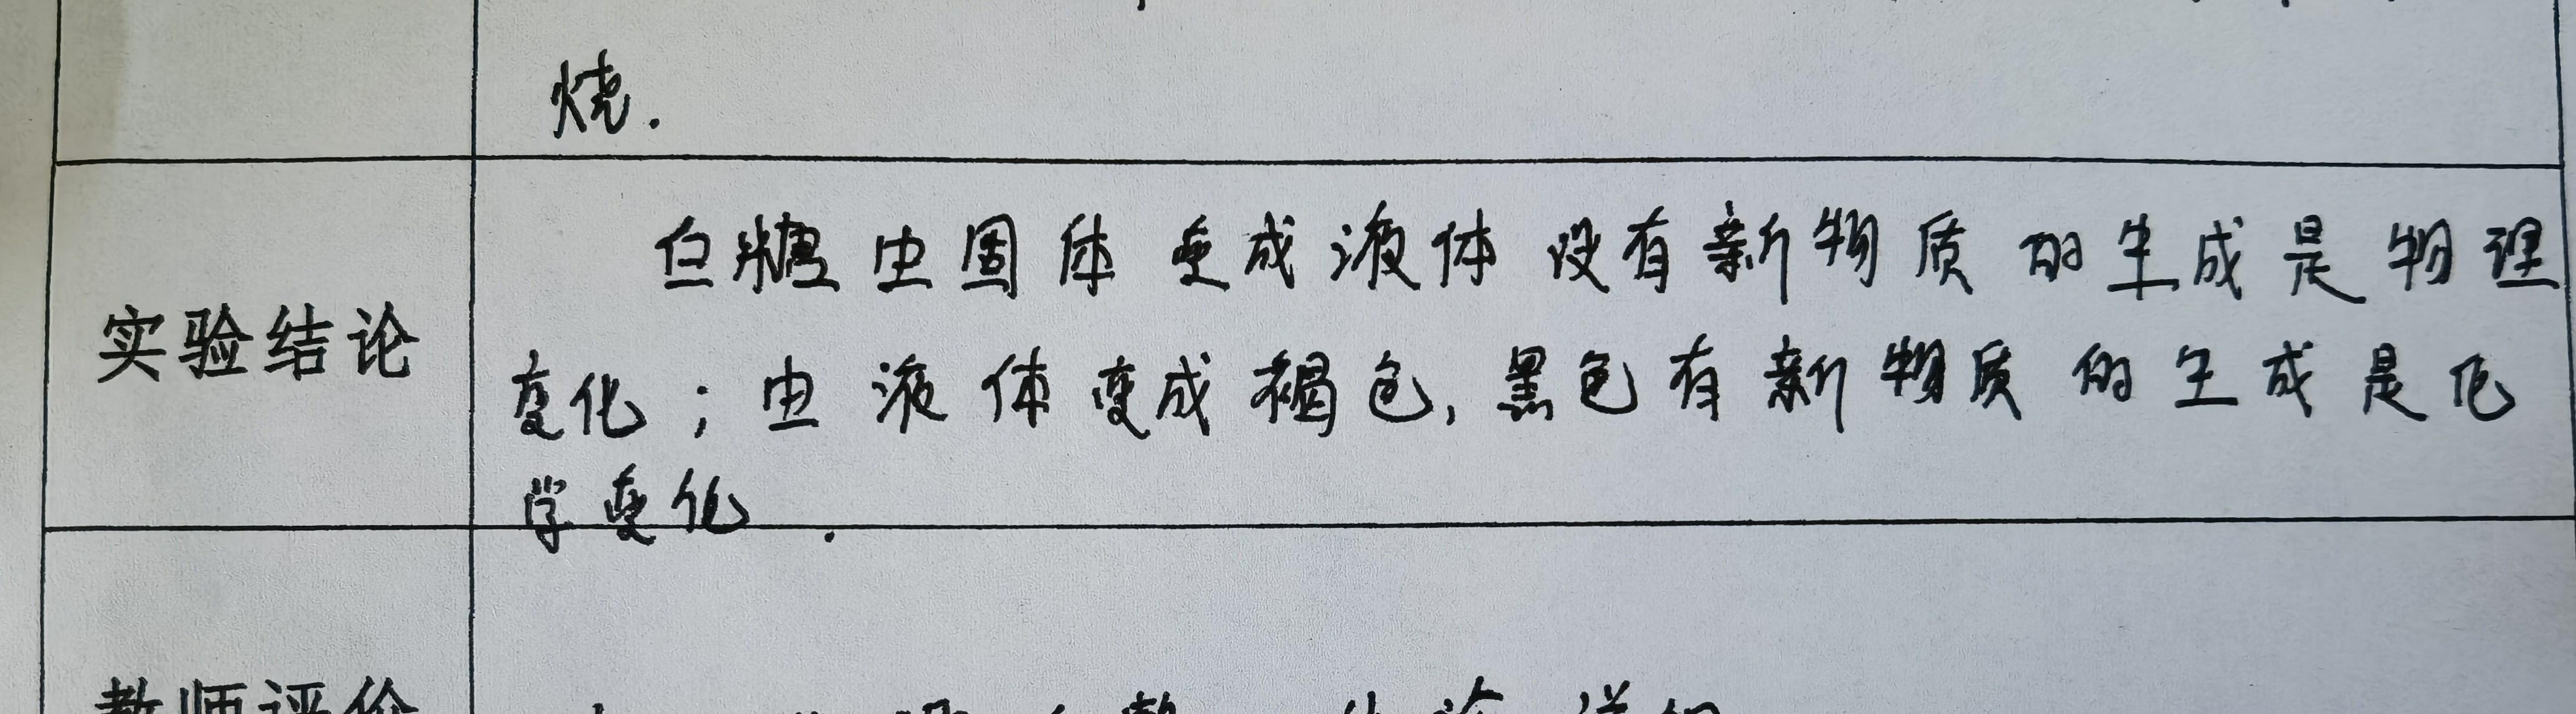 烧.
实验结论
白糖由固体变成液体没有新物质的生成是物理
变化；由液体变成褐色,黑色有新物质的生成是化
学变化.
教师评价